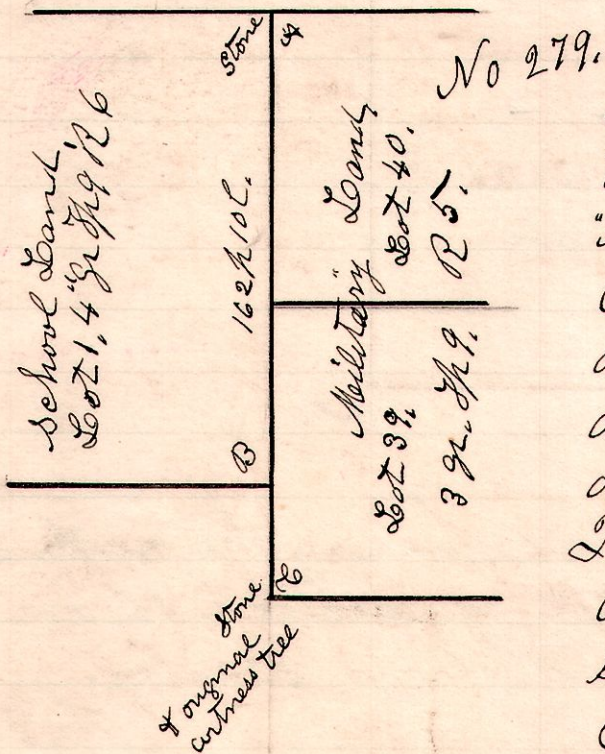 No 279.
Stone
A
School Land
Lot 1, 4" Qr Tp 9 R 6
162 P 10 L.
B
Military Land
Lot 40.
R 5.
Lot 39.
3 qr. Tp 9.
C
Stone
& original
witness tree